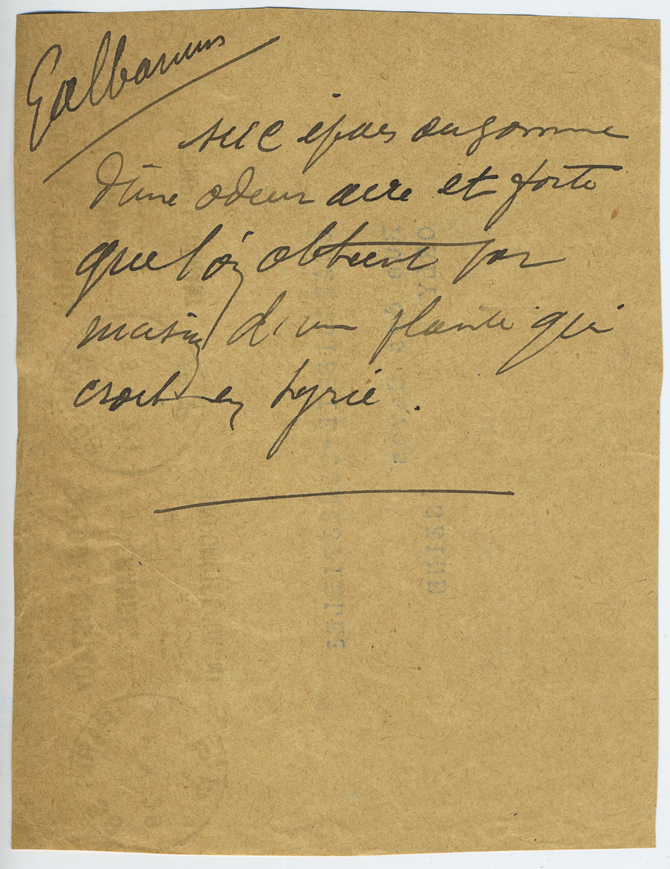 Galbanum
suc épais ou gomme
d'une odeur acre et forte
que l'on obtient par
d'une plante qui
croit en Syrie.